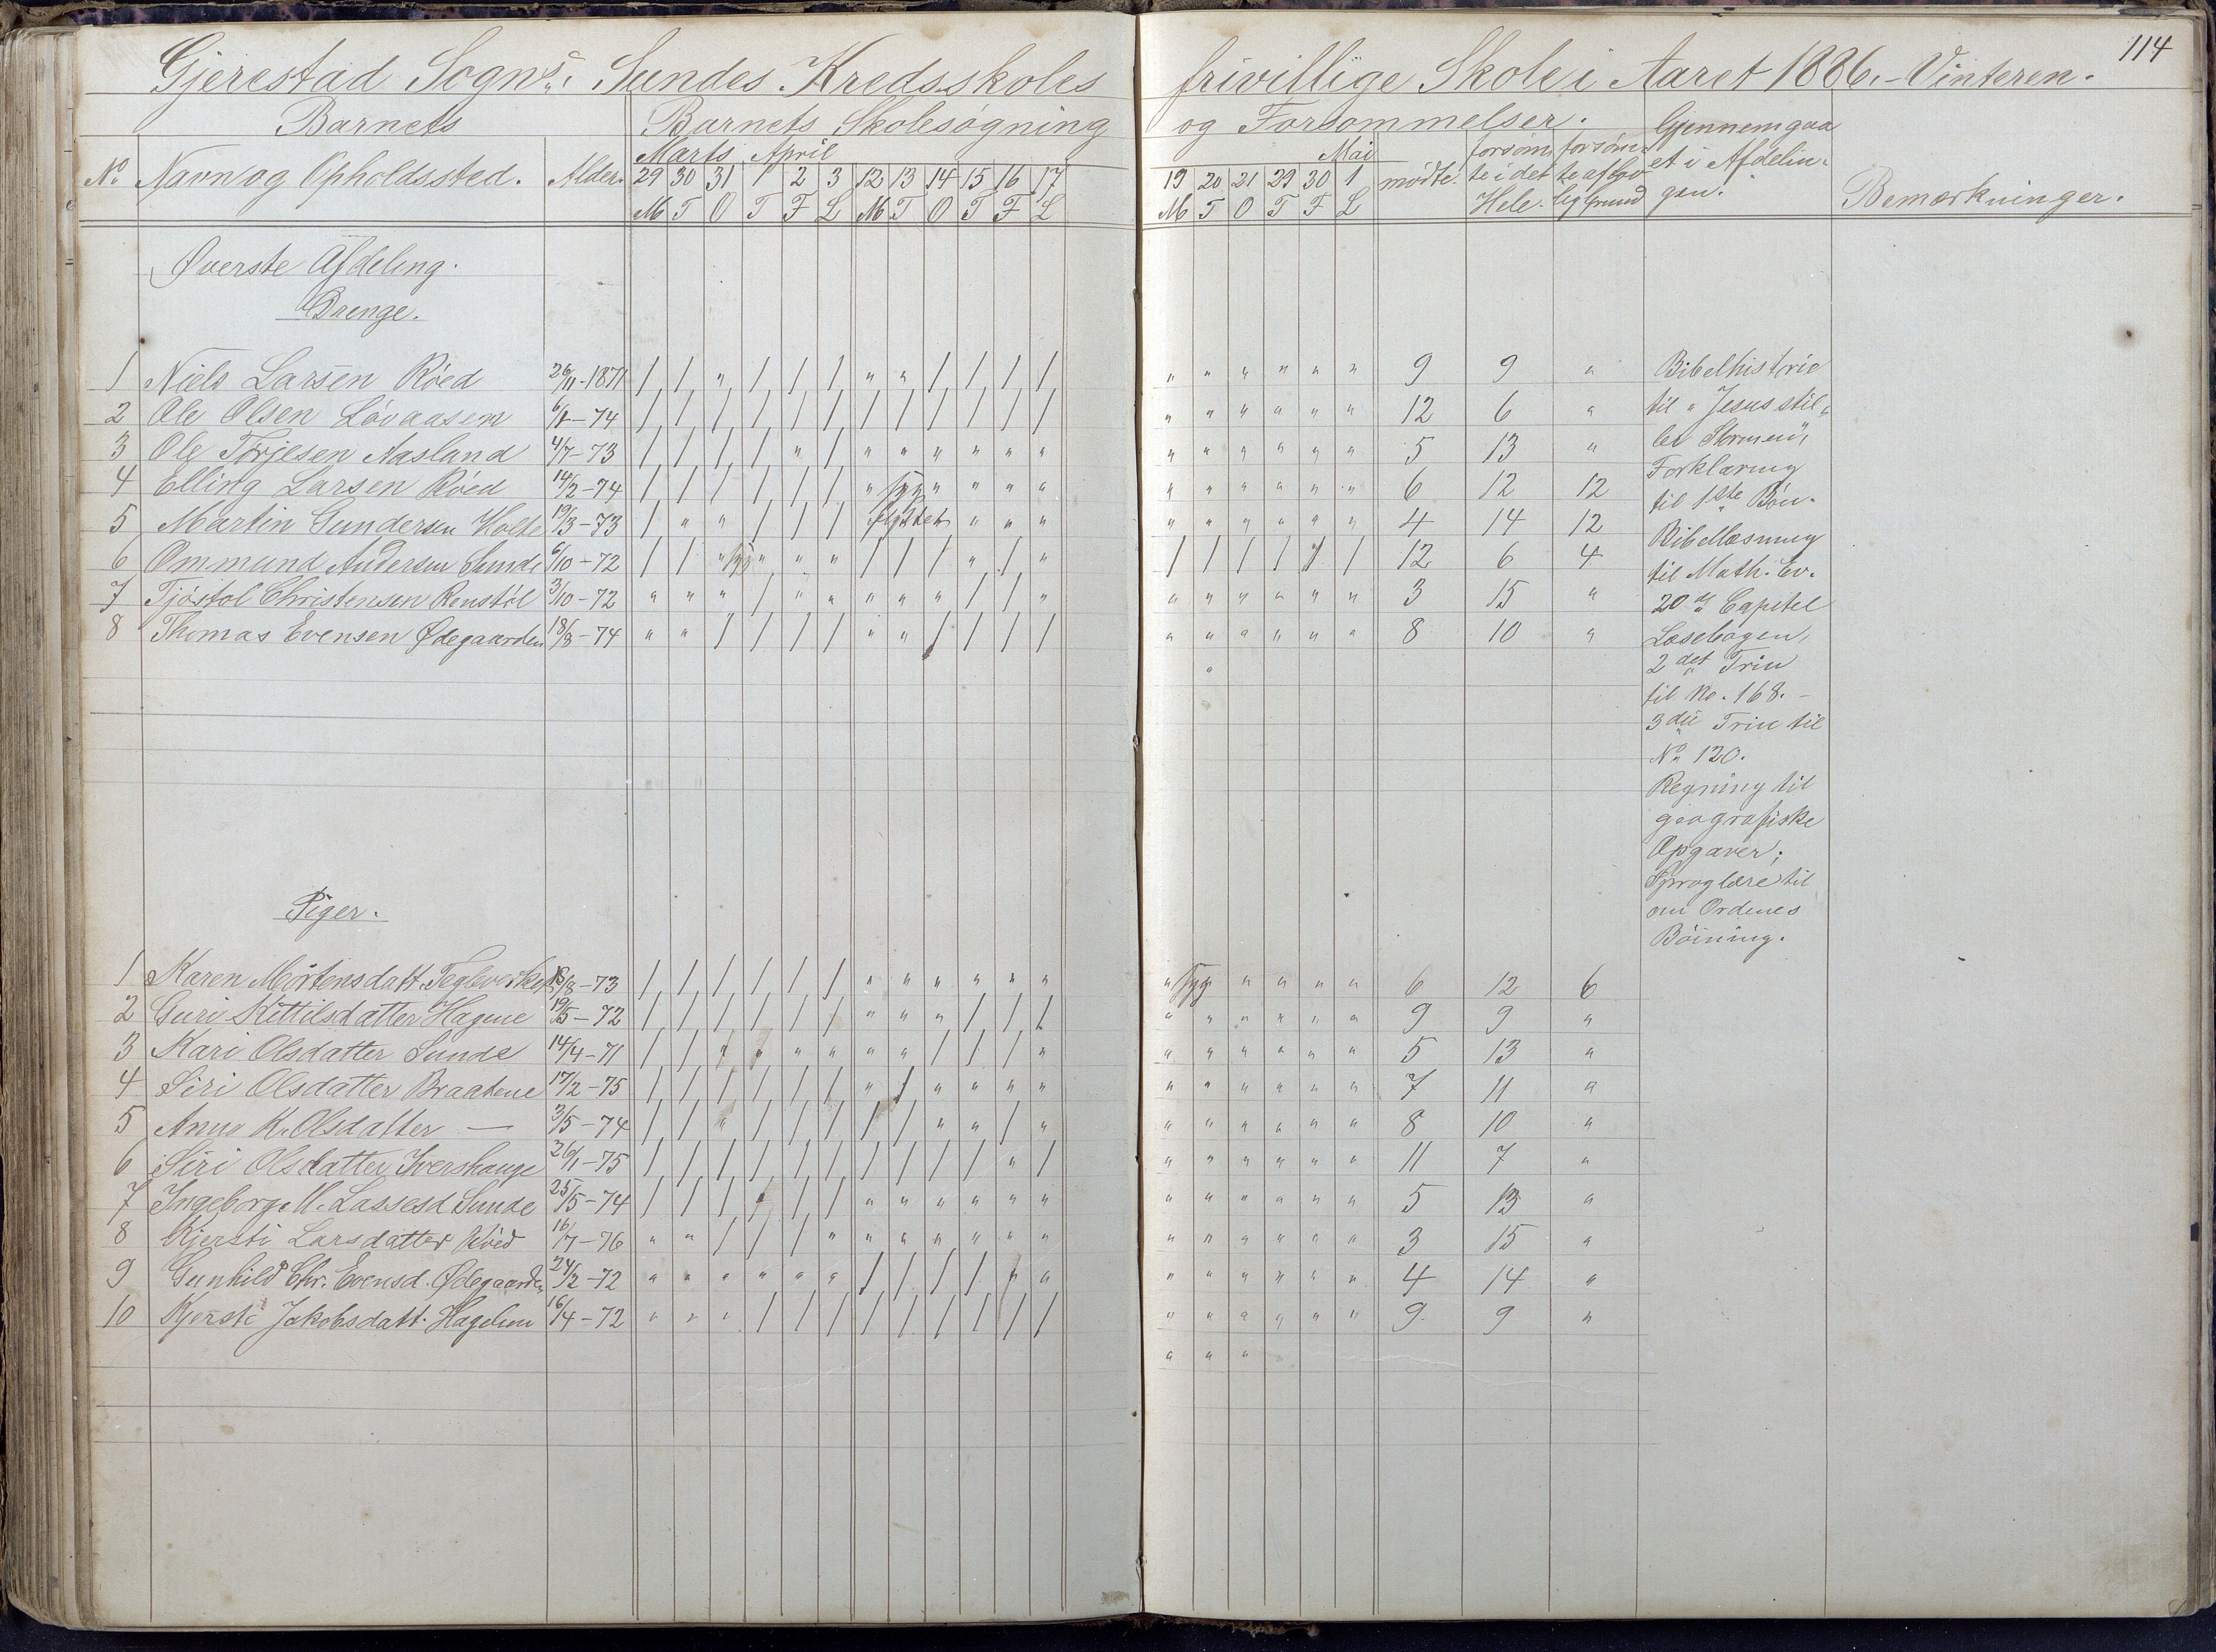 114
Gjerestad Sogns, Sundes Kredsskoles frivillige Skole i Aaret 1886. - Vinteren.
Barnets Barnets Skolesøgning og Forsømmelser. Gjennemgaa
Marts April Mai forsøm forsøm et i Afdelin
No Navn og Opholdssted. Alder. 29 30 31 1 2 3 12 13 14 15 16 17 19 20 21 29 30 1 mødte. te i det te af lov gen. Bemærkninger.
M T O T F L M T O T F L M T O T F L Hele. lig Grund
Øverste Afdeling.
Drenge.
1 Niels Larsen Röed 26/11-1871 / / " / / / " " / / / / " " " " " " 9 9 " Bibelhistorie
2 Ole Olsen Lövaasen 6/1-74 / / / / / / / / / / / / " " " " " " 12 6 " til "Jesus stil-
3 Ole Torjesen Aasland 4/7-73 / / / / " / " " " " " " " " " " " " 5 13 " ler Stormen",
4 Elling Larsen Röed 14/2-74 / / / / / / " syg " " " " " " " " " " 6 12 12 Forklaring
til 1ste Bön.
5 Martin Gundersen Holte 19/3-73 / " " / / / flyttet " " " " " " " " " 4 14 12
6 Ommund Andersen Sunde 6/10-72 / / " syg " " " / / / " / " / / / / / / 12 6 4 Bibellæsning
til Math. Ev.
7 Tjöstol Christensen Renstöl 3/10-72 " " " / " " " " " / / " " " " " " " 3 15 " 20de Capitel
8 Thomas Evensen Ødegaarden 18/8-74 " " / / / / " " / / / / " " " " " " 8 10 " Læsebogen,
2det Trin
til No. 168. -
3die Trin til
No 120.
Regning til
geografiske
Opgaver;
Sproglære til
om Ordenes
Böining.
Piger.
1 Karen Mortensdatt. Teglverket 18/8-73 / / / / / / " " " " " " " syg " " " " 6 12 6
2 Guri Kittilsdatter Hagene 19/5-72 / / / / / / " " " / / / " " " " " " 9 9 "
3 Kari Olsdatter Sunde 14/4-71 / / " " " " " " / / / " " " " " " " 5 13 "
4 Siri Olsdatter Braatene 17/2-75 / / / / / / " / " " " " " " " " " " 7 11 "
5 Anne K. Olsdatter — 3/5-74 / / " / / / / / " " / " " " " " " " 8 10 "
6 Siri Olsdatter Ivershauge 26/1-75 / / / / / / / / / / " / " " " " " " 11 7 "
7 Ingeborg M. Lassesd Sunde 25/5-74 / / / " / / " " " " " " " " " " " " 5 13 "
8 Kjersti Larsdatter Röed 16/7-76 " " / / / " " " " " " " " " " " " " 3 15 "
9 Gunhild Chr. Evensd. Ødegaarden 24/2-72 " " " " " " / / / / " " " " " " " " 4 14 "
10 Kjersti Jakobsdatt. Hagelien 16/4-72 " " " / / / / / / / / / " " " " " " 9 9 "
" " "